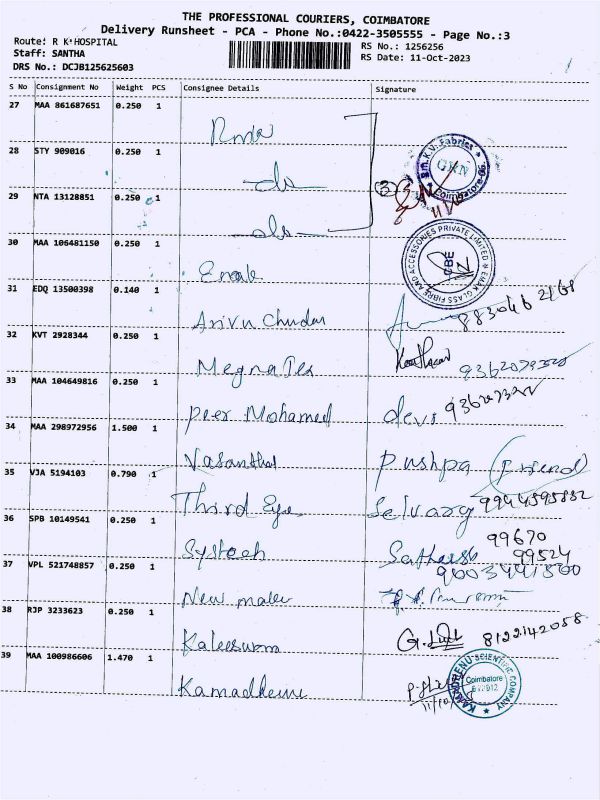 THE PROFESSIONAL COURIERS, COIMBATORE
Delivery Runsheet - PCA - Phone No.:0422-3505555 - Page No.:3
Route: R K HOSPITAL
Staff: SANTHA
DRS No.: DCJB125625603
RS No.: 1256256
RS Date: 11-Oct-2023
S No Consignment No Weight PCS Consignee Details Signature
27 MAA 861687651 0.250 1
28 STY 909016 0.250 1 -do-
S.m.K.V. Fabrics
GRN
Coimbatore
29 NTA 13128851 0.250 1 -do-
30 MAA 106481150 0.250 1 Enak
FIBRE AND ACCESSORIES PRIVATE LIMITED & ENAK GLASS
CBE
31 EDQ 13500398 0.140 1 Arivu Chudar
32 KVT 2928344 0.250 1 Megna Tex
33 MAA 104649816 0.250 1 Peer Mohamed devi
34 MAA 298972956 1.500 1 Vasanthal Pushpa (Friend)
35 VJA 5194103 0.790 1 Third Eye Selvaraj 9944595832
36 SPB 10149541 0.250 1 Systech Satheesh 99670
99524
37 VPL 521748857 0.250 1 New
38 RJP 3233623 0.250 1 Kaleeswm 8122142058
39 MAA 100986606 1.470 1 Kamadhenu
KAMADHENU SCIENTIFIC COMPANY
Coimbatore